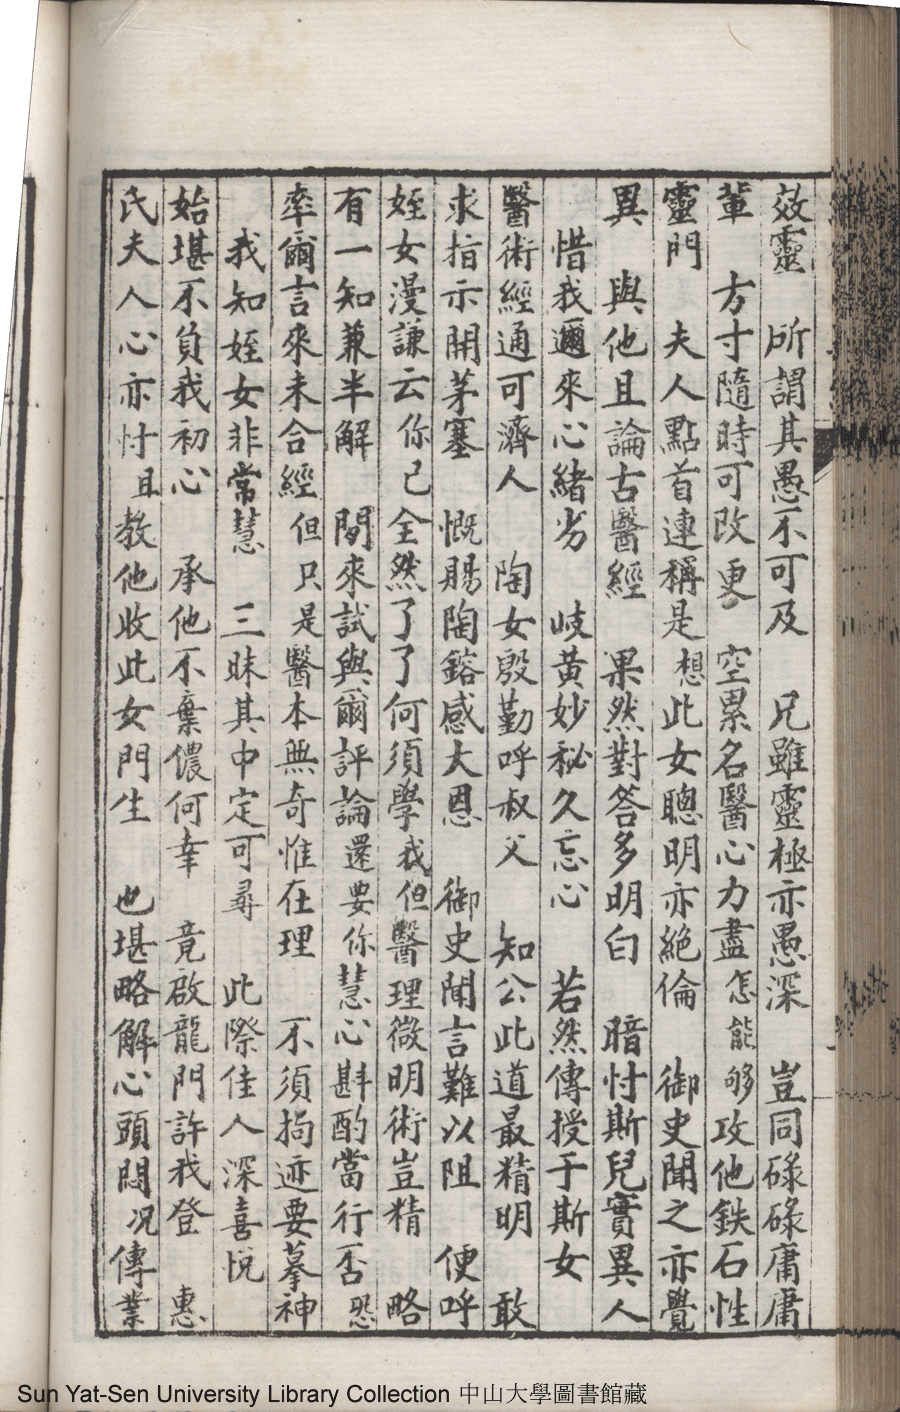 效靈　所謂其愚不可及　兄雖靈極亦愚深　豈同碌碌庸庸
輩　方寸隨時可改更　空累名醫心力盡怎能够攻他鉄石性
靈門　夫人點首連稱是想此女聰明亦絕倫　御史聞之亦覺
異　與他且論古醫經　果然對答多明白　暗忖斯兒實異人
惜我邇來心緒劣　岐黃妙秘久忘心　若然傳授于斯女
醫術經通可濟人　陶女殷勤呼叔父　知公此道最精明　敢
求指示開茅塞　慨賜陶鎔感大恩　御史聞言難以阻　便呼
姪女漫謙云你已全然了了何須學我但醫理微明術豈精　略
有一知兼半解　閒來試與爾評論還要你慧心斟酌當行否恐
率爾言來未合經但只是醫本無奇惟在理　不須拘迹要摹神
我知姪女非常慧　三昧其中定可尋　此際佳人深喜悅
始堪不負我初心　承他不棄儂何幸　竟啟龍門許我登　惠
氏夫人心亦忖且教他收此女門生　也堪略解心頭悶况傳業
Sun Yat-Sen University Library Collection 中山大學圖書館藏